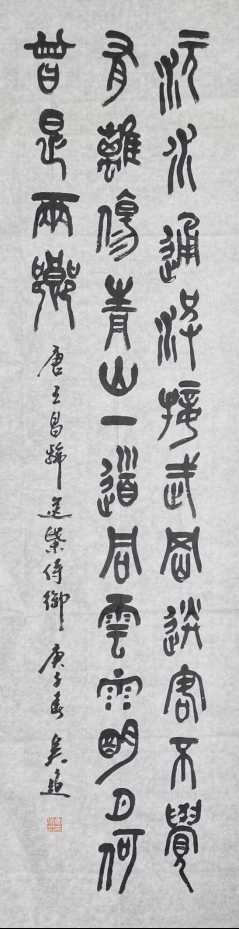 沅水通波接武岡送君不覺
有離傷青山一道同雲雨明月何
曾是兩鄉 唐王昌齡送柴侍御 庚子春 吳